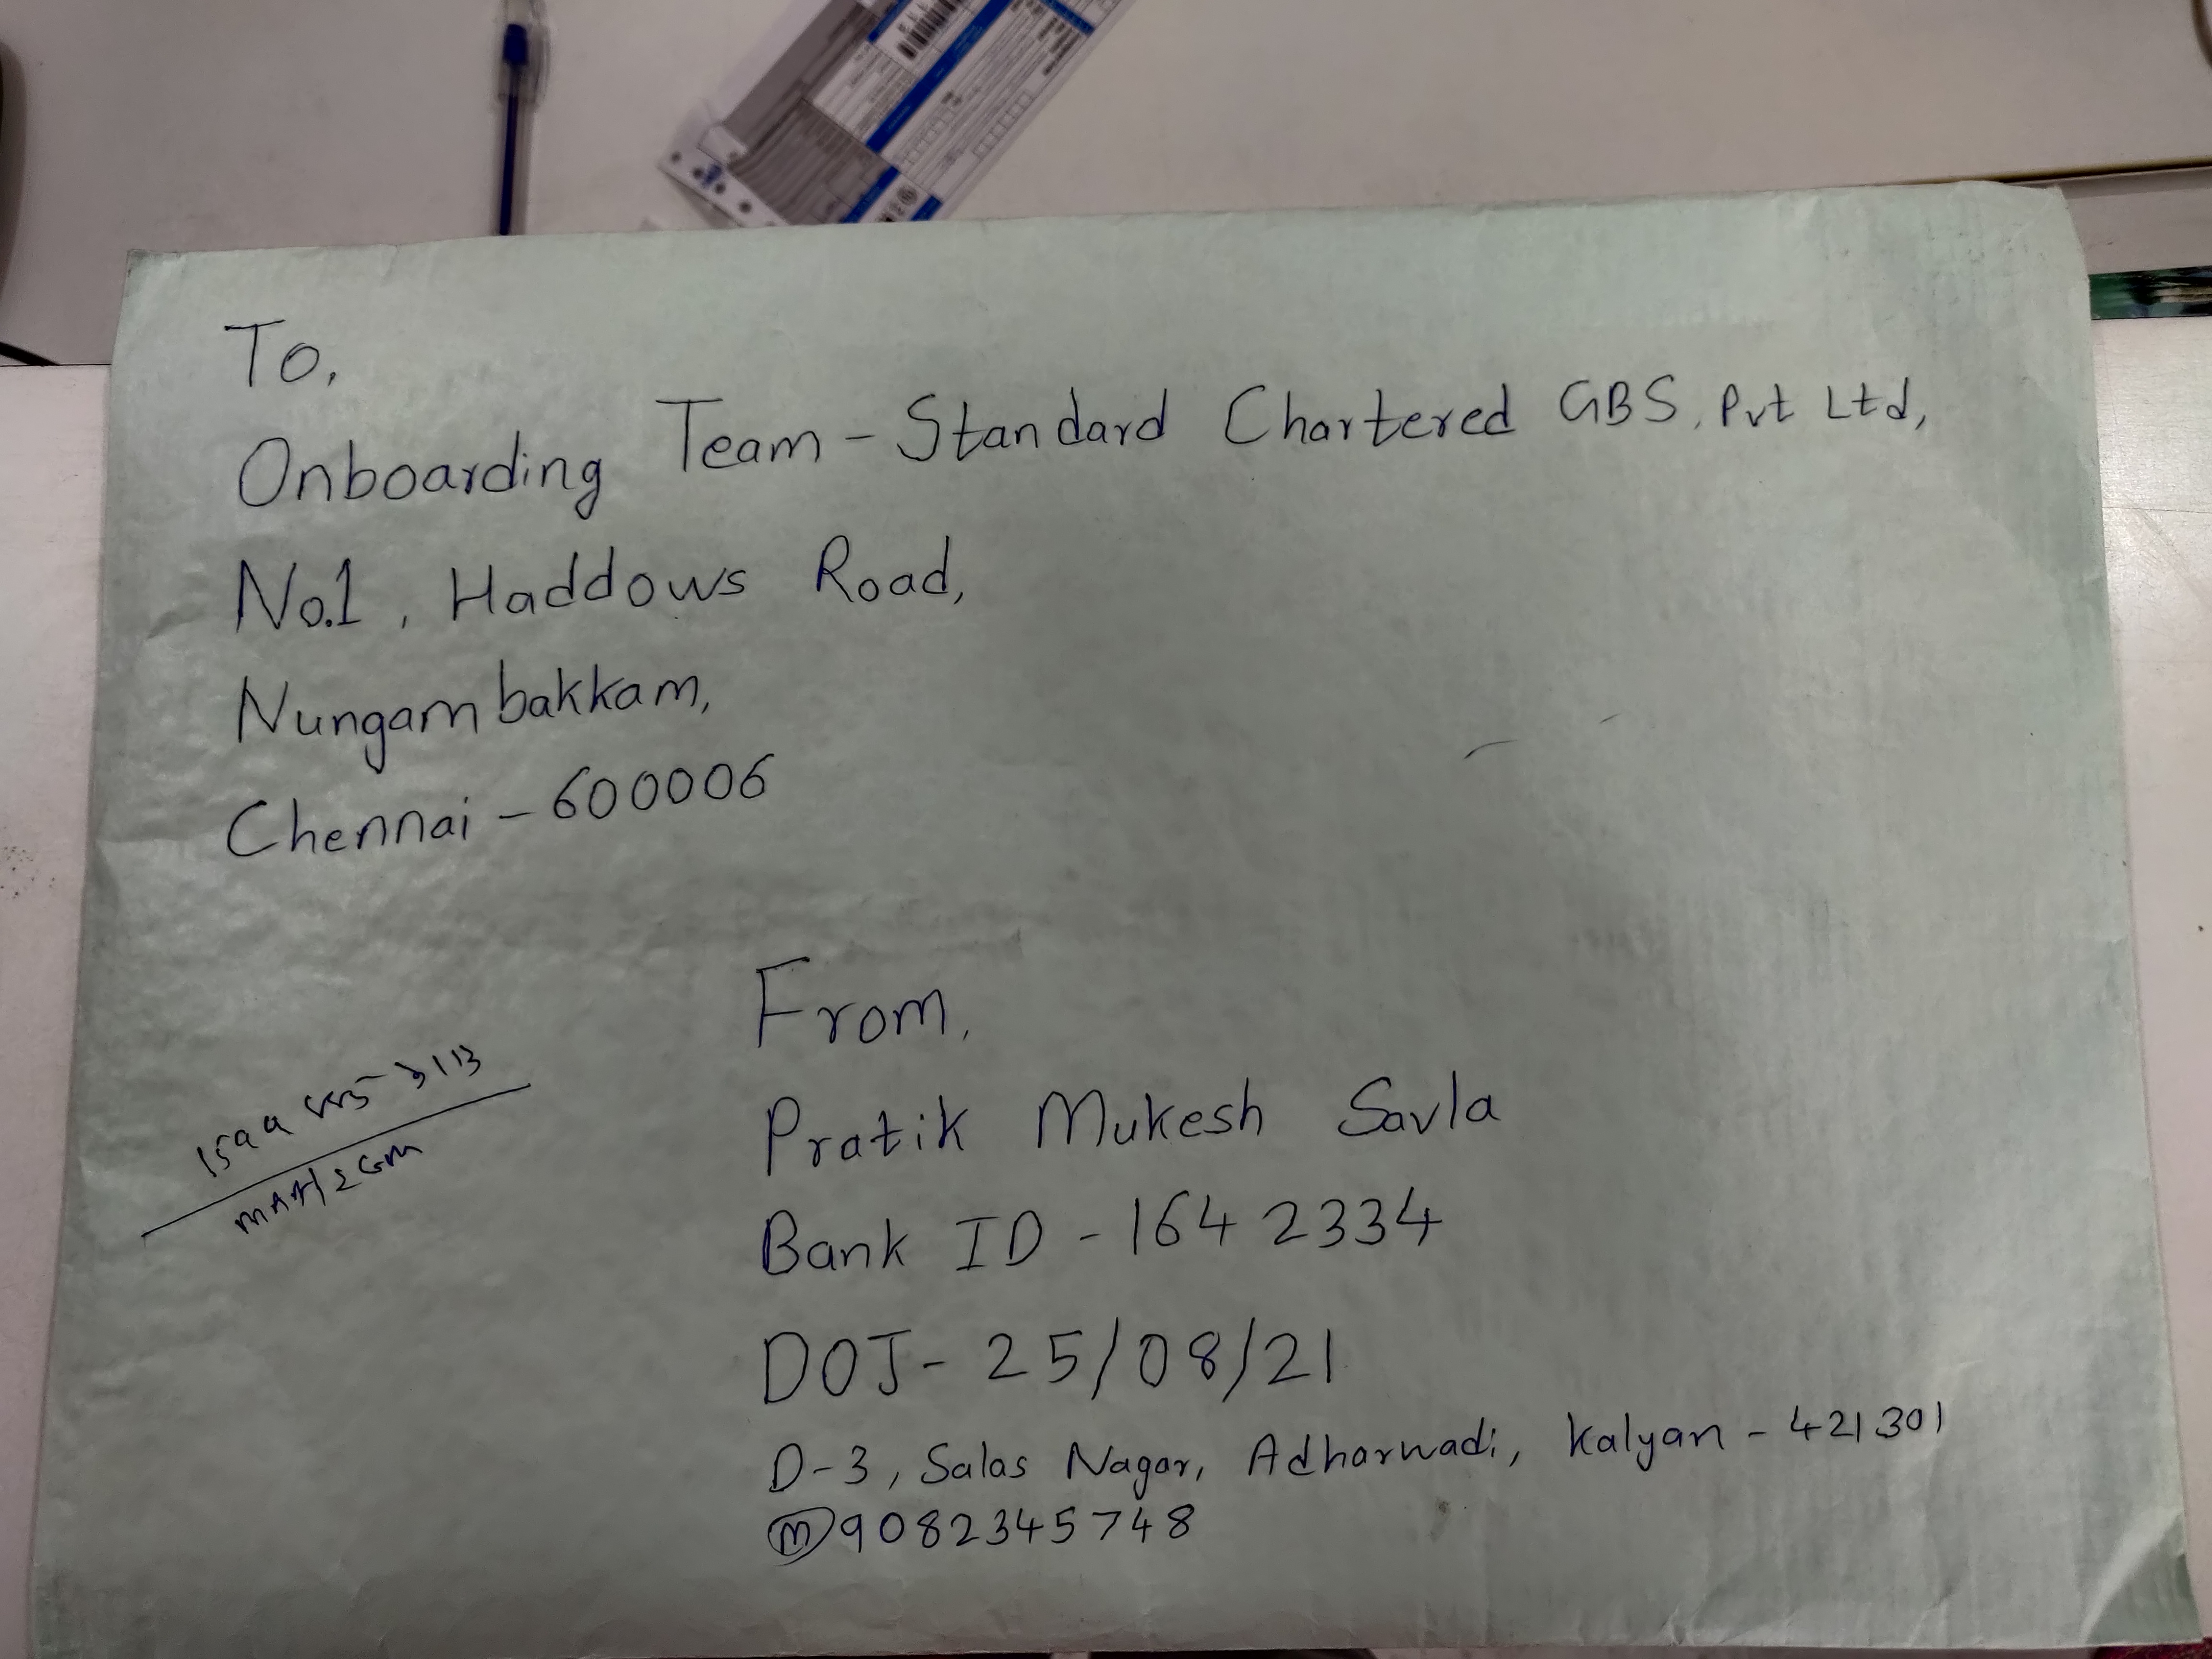 To,
Onboarding Team - Standard Chartered GBS, Pvt Ltd,
No.1, Haddows Road,
Nungambakkam,
Chennai - 600006
From,
Pratik Mukesh Savla
Bank ID - 1642334
DOJ - 25/08/21
D-3, Salas Nagar, Adharwadi, Kalyan - 421301
(M) 9082345748